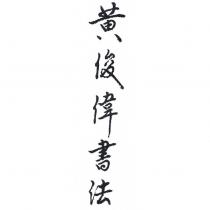 黃俊偉書法